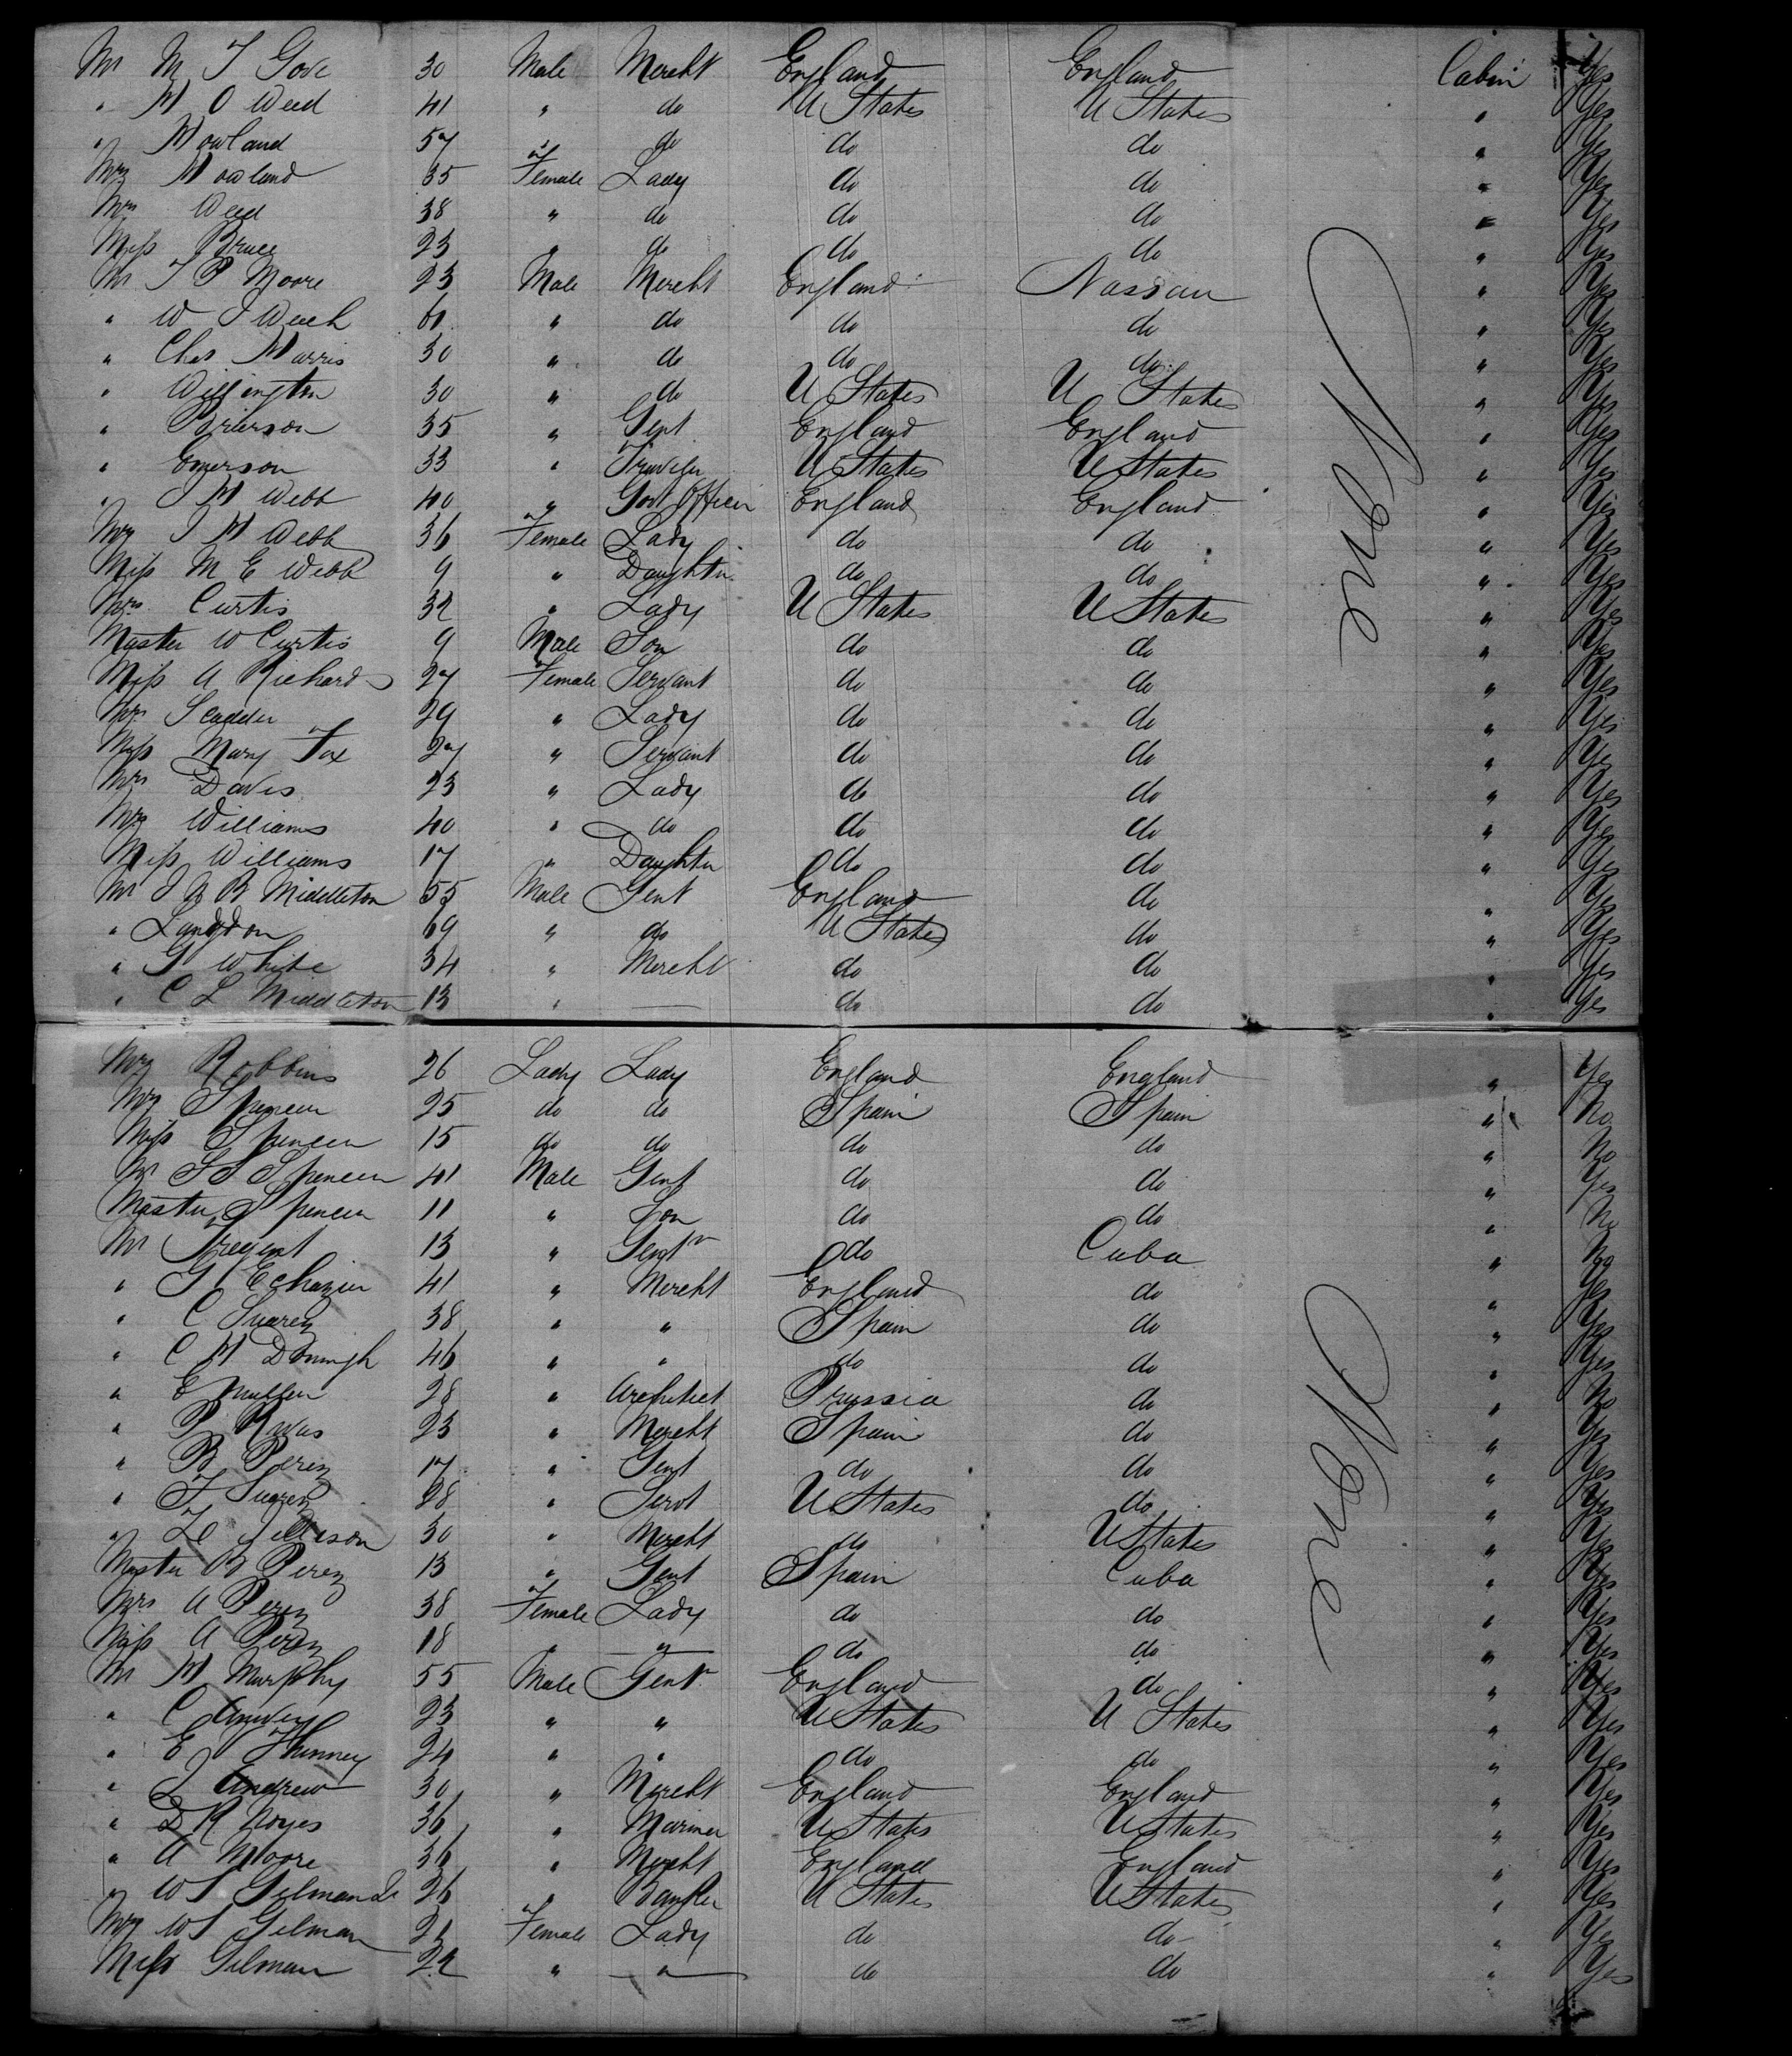 Mr M T Gove 30 Male Mercht England England Cabin Yes
" H O Weed 41 " do U States U States " Yes
" Howland 57 " do do do " Yes
Mrs Howland 35 Female Lady do do " Yes
Mrs Weed 38 " do do do " Yes
Miss Bruce 23 " do do do " Yes
Mr T P Moore 23 Male Mercht England Nassau " Yes
" W J Weech 61 " do do do " Yes
" Chas Harris 30 " do do do " Yes
" Willington 30 " do U States U States " Yes
" 35 " Gent England England " Yes
" Emerson 33 " Traveler U States U States " Yes
" J H Webb 40 " Govt Officer England England " Yes
Mrs J H Webb 36 Female Lady do do " Yes
Miss M E Webb 9 " Daughter do do " Yes
Mrs Curtis 32 " Lady U States U States " Yes
Master W Curtis 9 Male Son do do " Yes
Miss A Richards 27 Female Servant do do " Yes
Mrs Scudder 29 " Lady do do " Yes
Miss Mary Fox 27 " Servant do do " Yes
Mrs Davis 23 " Lady do do " Yes
Mrs Williams 40 " do do do " Yes
Miss Williams 17 " Daughter do do " Yes
Mr J B Middleton 55 Male Gent England do " Yes
" Langdon 69 " do U States do " Yes
" G White 34 " Mercht do do " Yes
" C L Middleton 13 " — do do " Yes
None
Mrs Robbins 26 Lady Lady England England " Yes
Mrs Spencer 25 do do Spain Spain " No
Miss Spencer 15 do do do do " No
Mr Spencer 41 Male Gent do do " Yes
Master Spencer 11 " Son do do " No
Mr 13 " Gent do Cuba " No
" G Echazier 41 " Mercht England do " Yes
" C Suarez 38 " " Spain do " Yes
" C H 46 " " do do " Yes
" E Muller 28 " Architect Prussia do " No
" P Rivas 23 " Mercht Spain do " Yes
" B Perez 17 " Gent do do " Yes
" F Suarez 28 " Servt U States do " Yes
" 30 " Mercht do U States " Yes
Master B Perez 13 " Gent Spain Cuba " Yes
Mrs A Perez 38 Female Lady do do " Yes
Miss A Perez 18 " " do do " Yes
Mr H Murphy 55 Male Gent England do " Yes
" C 23 " " U States U States " Yes
" E 24 " " do do " Yes
" J Andrew 30 " Mercht England England " Yes
" D R Noyes 36 " Mariner U States U States " Yes
" A Moore 36 " Mercht England England " Yes
" W S Gilman Jr 26 " Banker U States U States " Yes
Mrs W S Gilman 21 Female Lady do do " Yes
Miss Gilman 22 " " do do " Yes
None